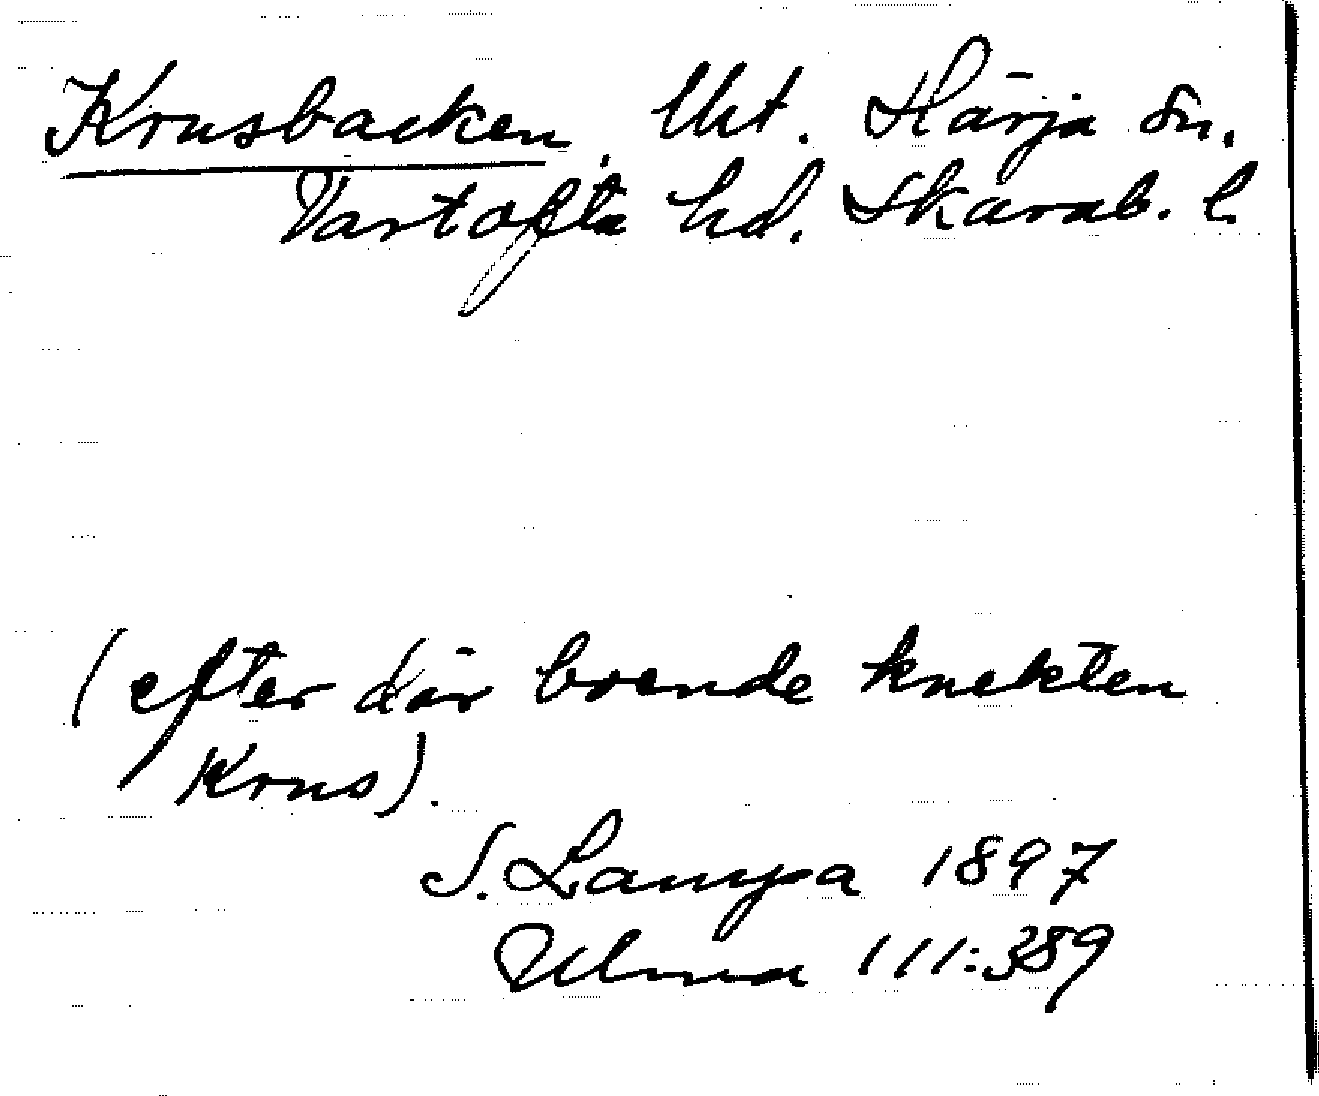 Krusbacken, lht. Härja sn.
Vartofta hd. Skarab. l.
(efter där boende knekten
Krus).
S. Lampa 1897
Ulma 111:389